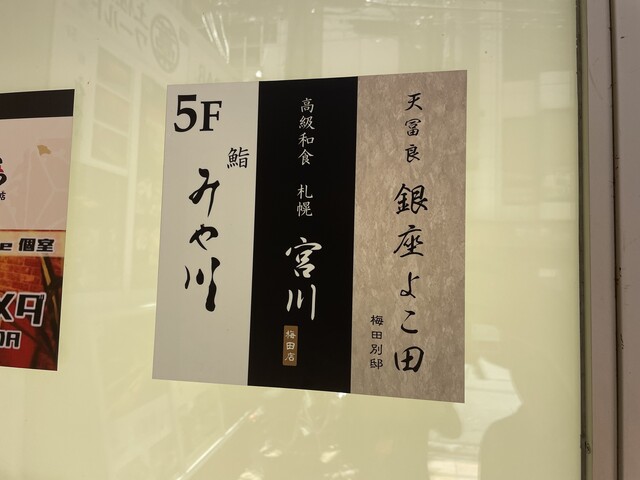 5F
鮨
みや川
高級和食 札幌
宮川
梅田店
天冨良
銀座よこ田
梅田別邸
e 個室
店